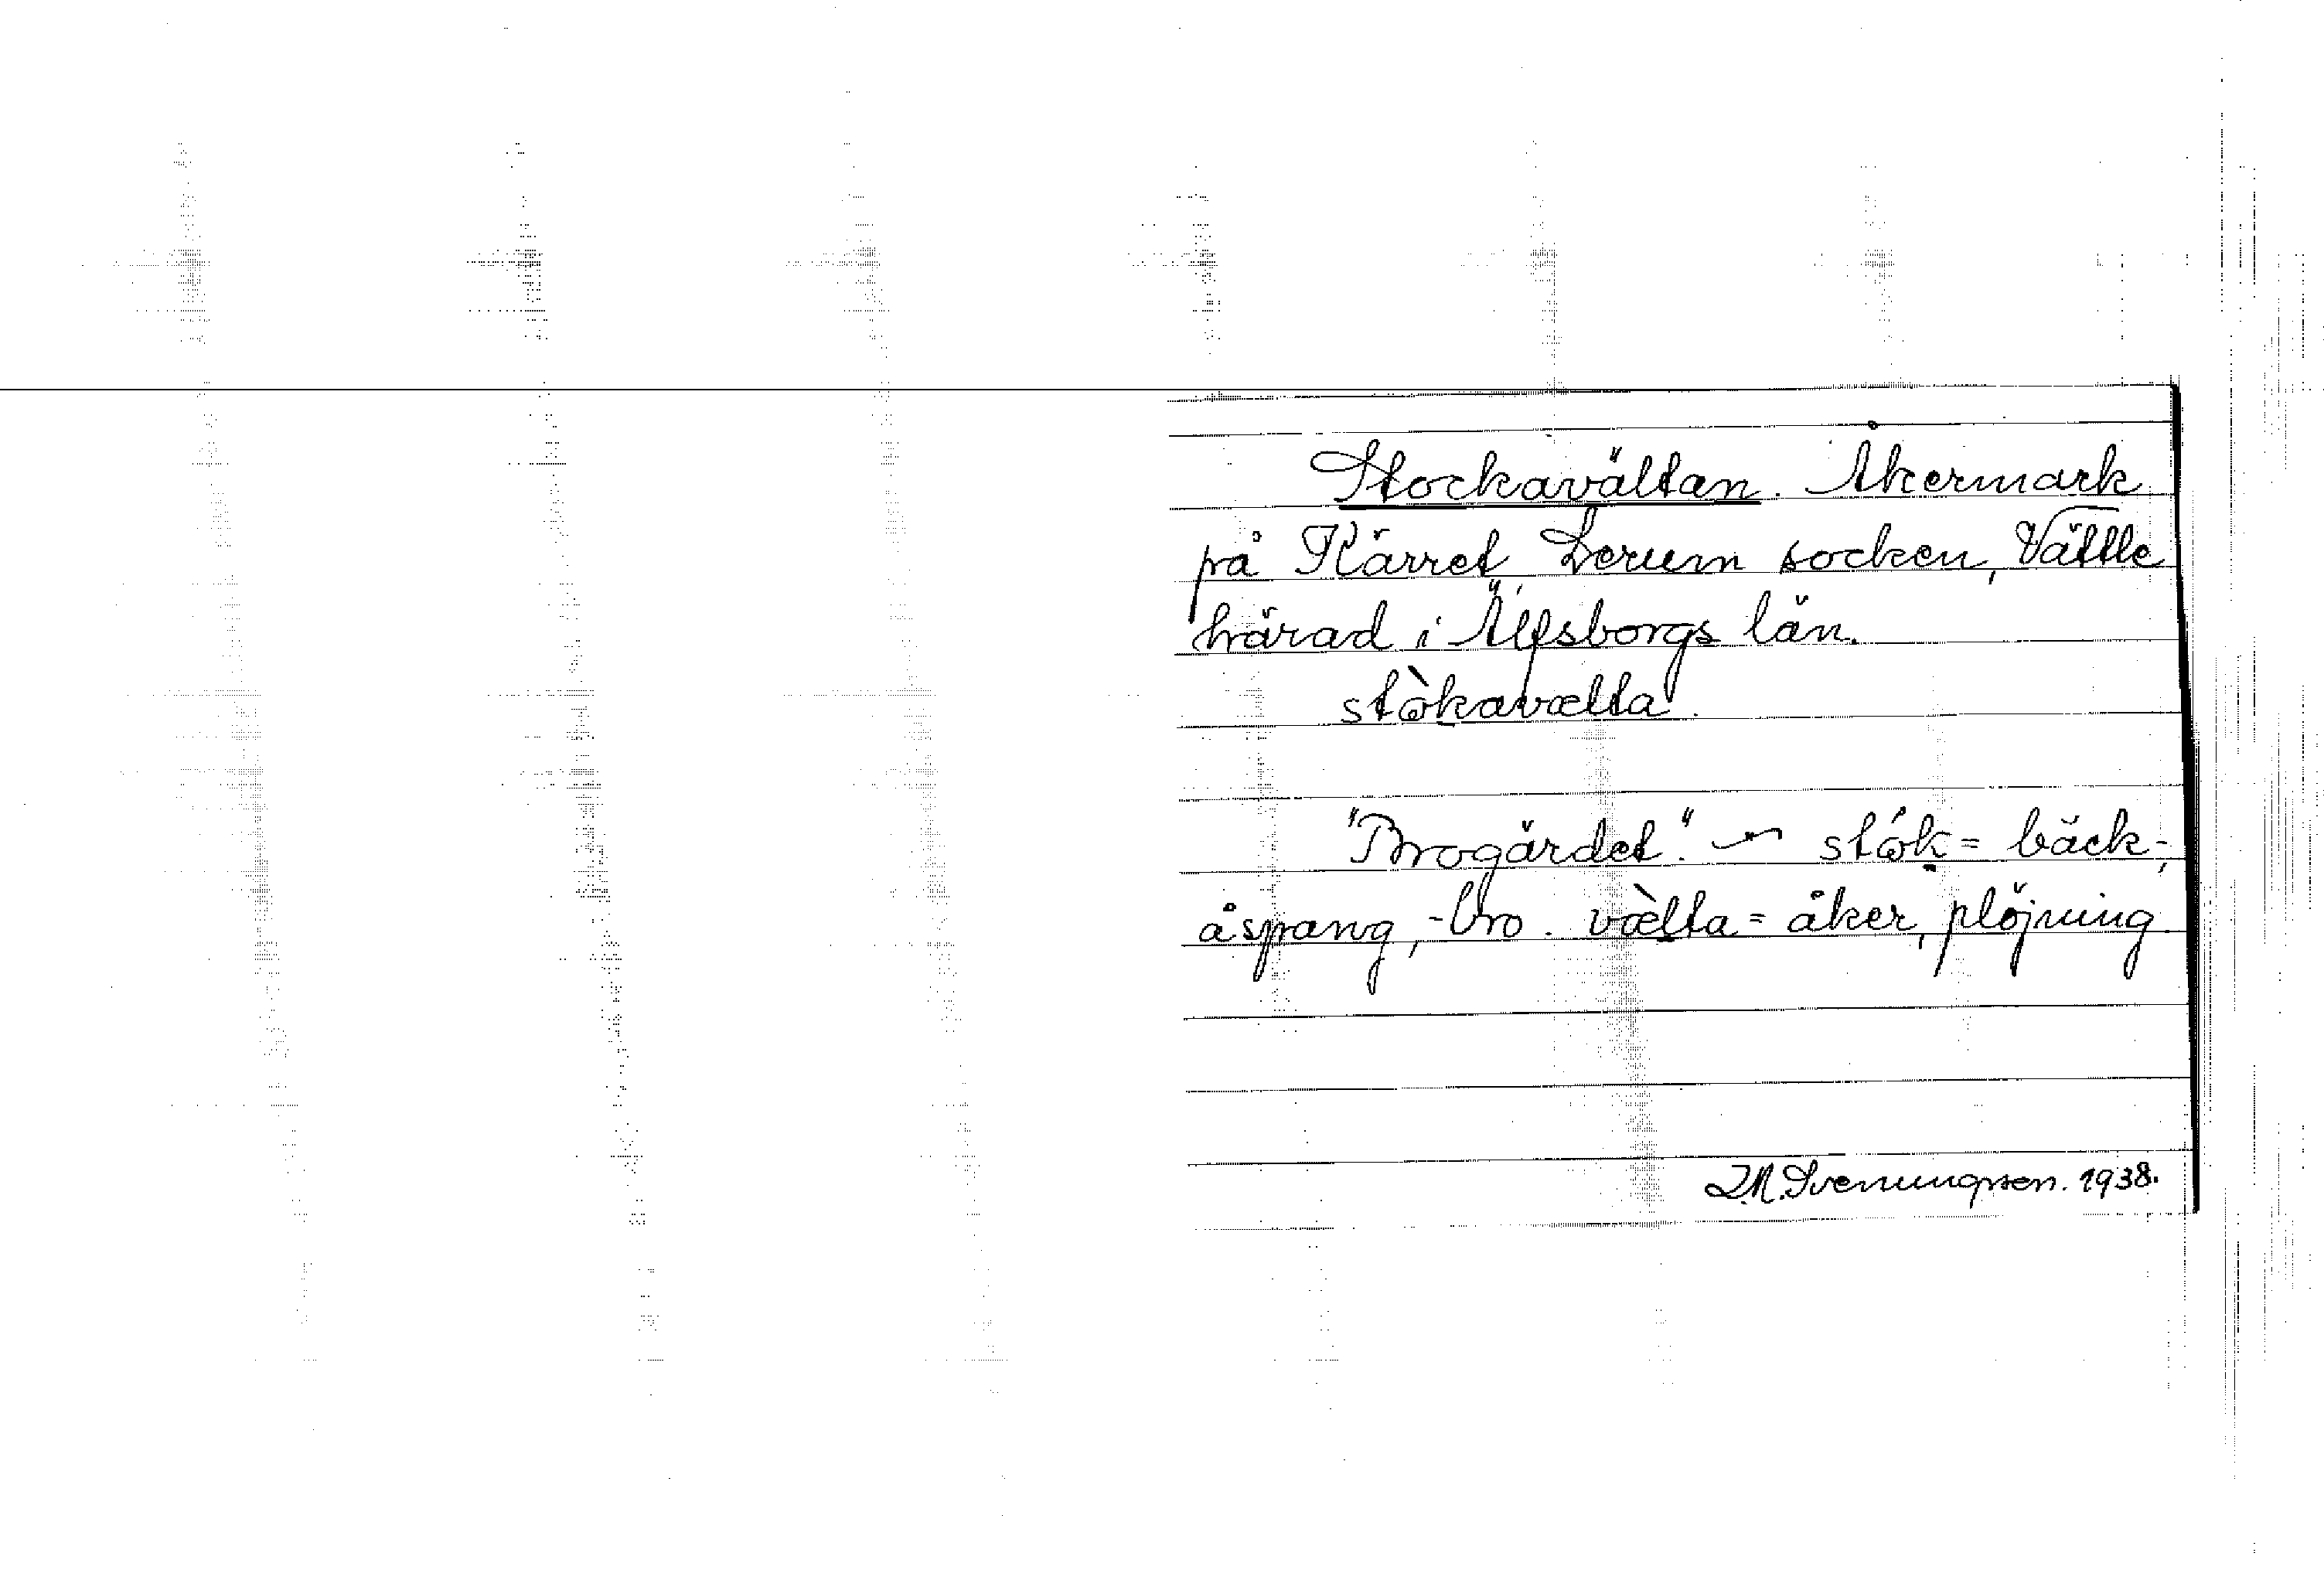 Stockavältan. Åkermark
på Kärret, Lerum socken, Vättle
härad i Älfsborgs län.
stòkavælta.
"Brogärdet." — stók = bäck-,
åspang, -bro. vælta = åker, plöjning
I.M. Svenungsson. 1938.